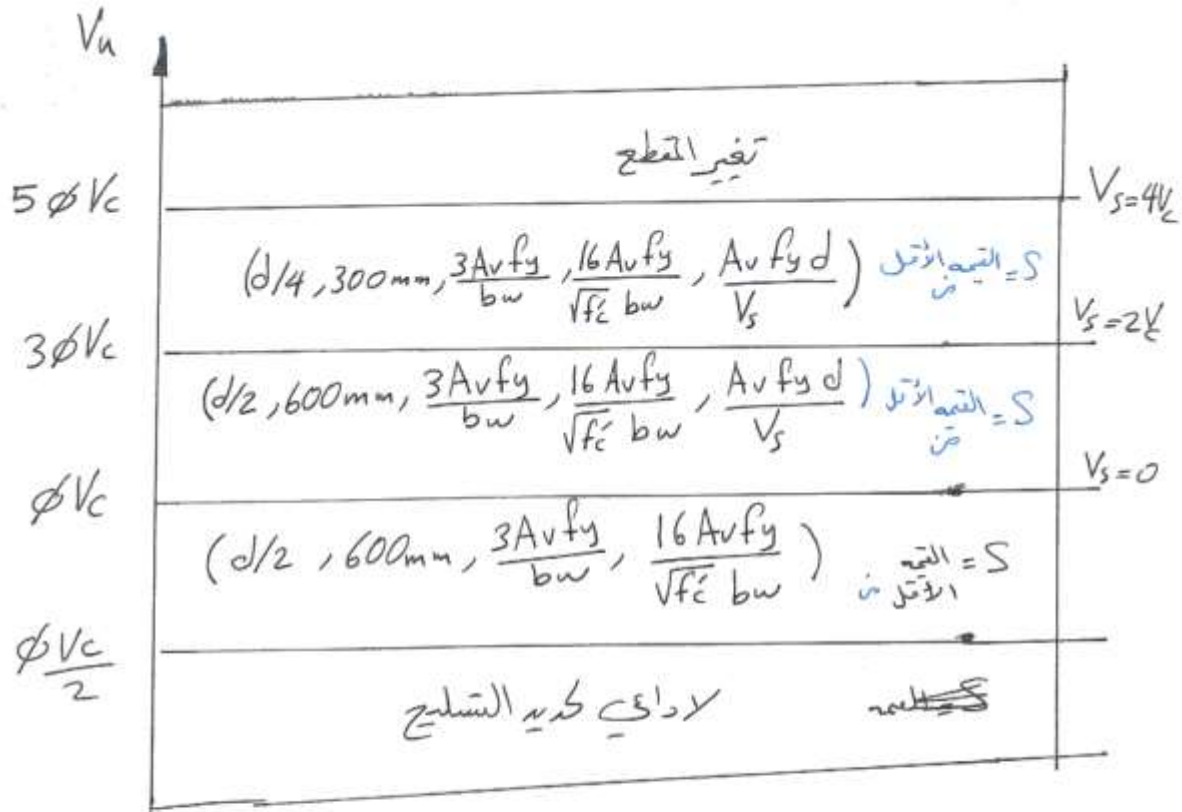 Vu
تغير المقطع
5 ϕ Vc
Vs=4Vc
(d/4 , 300 mm, 3Avfy/bw , 16 Avfy/√fć bw , Av fy d/Vs) S = القيمه الأقل من
3ϕVc
Vs=2Vc
(d/2 , 600 mm, 3Avfy/bw , 16 Avfy/√fć bw , Av fy d/Vs) S = القيمه الأقل من
ϕ Vc
Vs=0
(d/2 , 600mm, 3Avfy/bw , 16 Avfy/√fć bw) S = القيمه الأقل من
ϕ Vc/2
لا داعي لحديد التسليح